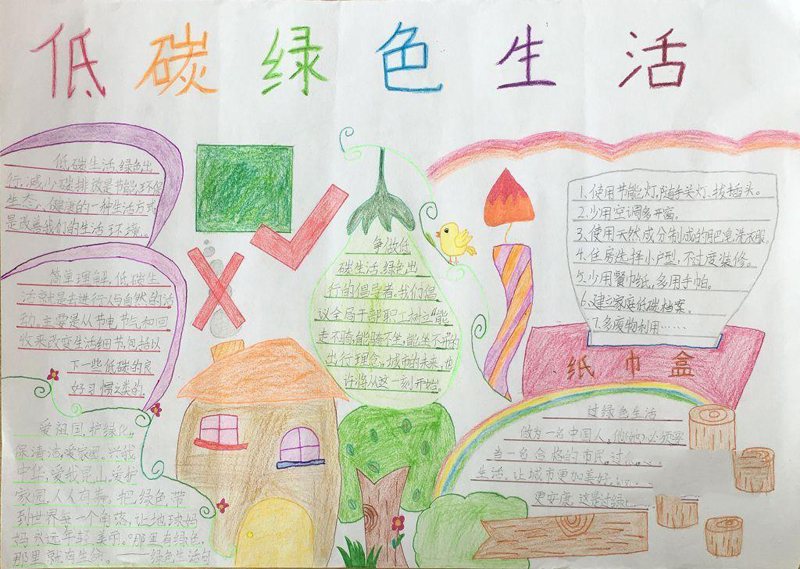 低碳绿色生活
低碳生活,绿色出
行,减少碳排放是节能,环保
生态,健康的一种生活方式
是改善我们的生活环境。
简单理解,低碳生
活就是去进行人与自然的活
动,主要是从节电,节气和回
收来改变生活细节,包括以
下一些低碳的良
好习惯之类的。
爱祖国,护绿化。
保清洁,爱家园,
中华,爱我昆山,爱护
家园,人人有责,把绿色,带
到世界每一个角落,让地球妈
妈永远年轻,美丽。"那里有绿色,
那里就有生命。——绿色生活句
争做低
碳生活,绿色出
行的倡导者,我们倡
议全局干部职工树立"能
走不骑,能骑不坐,能坐不开的
出行理念。城市的未来,也
许将从这一刻开始。
1.使用节能灯,随手关灯、拔插头。
2.少用空调多开窗。
3.使用天然成分制成的肥皂洗衣服。
4.住房选择小户型,不过度装修。
5.少用餐巾纸,多用手帕。
6.建立家庭低碳档案。
7.多废物利用……
纸巾盒
过绿色生活
做为一名中国人,他(她)必须要
当一名合格的市民,过
生活,让城市更加美好,
更安康,这是